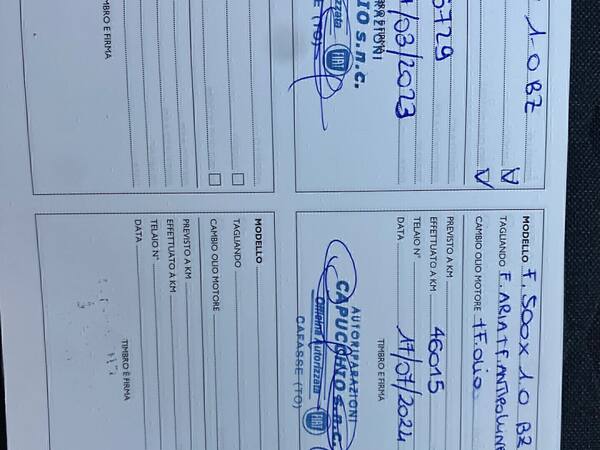 1.0 BZ
5729
/03/2023
TIMBRO E FIRMA
RIPARAZIONI
IO s.n.c.
FIAT
CAFASSE (TO)
TIMBRO E FIRMA
MODELLO F. 500X 1.0 BZ
TAGLIANDO F. ARIA + F. ANTIPOLLINE
CAMBIO OLIO MOTORE + F. OLIO
PREVISTO A KM
EFFETTUATO A KM 46015
TELAIO N°
DATA 17/07/2024
TIMBRO E FIRMA
AUTORIPARAZIONI
CAPUCCHIO s.n.c.
Officina Autorizzata
FIAT
CAFASSE (TO)
MODELLO
TAGLIANDO
CAMBIO OLIO MOTORE
PREVISTO A KM
EFFETTUATO A KM
TELAIO N°
DATA
TIMBRO E FIRMA